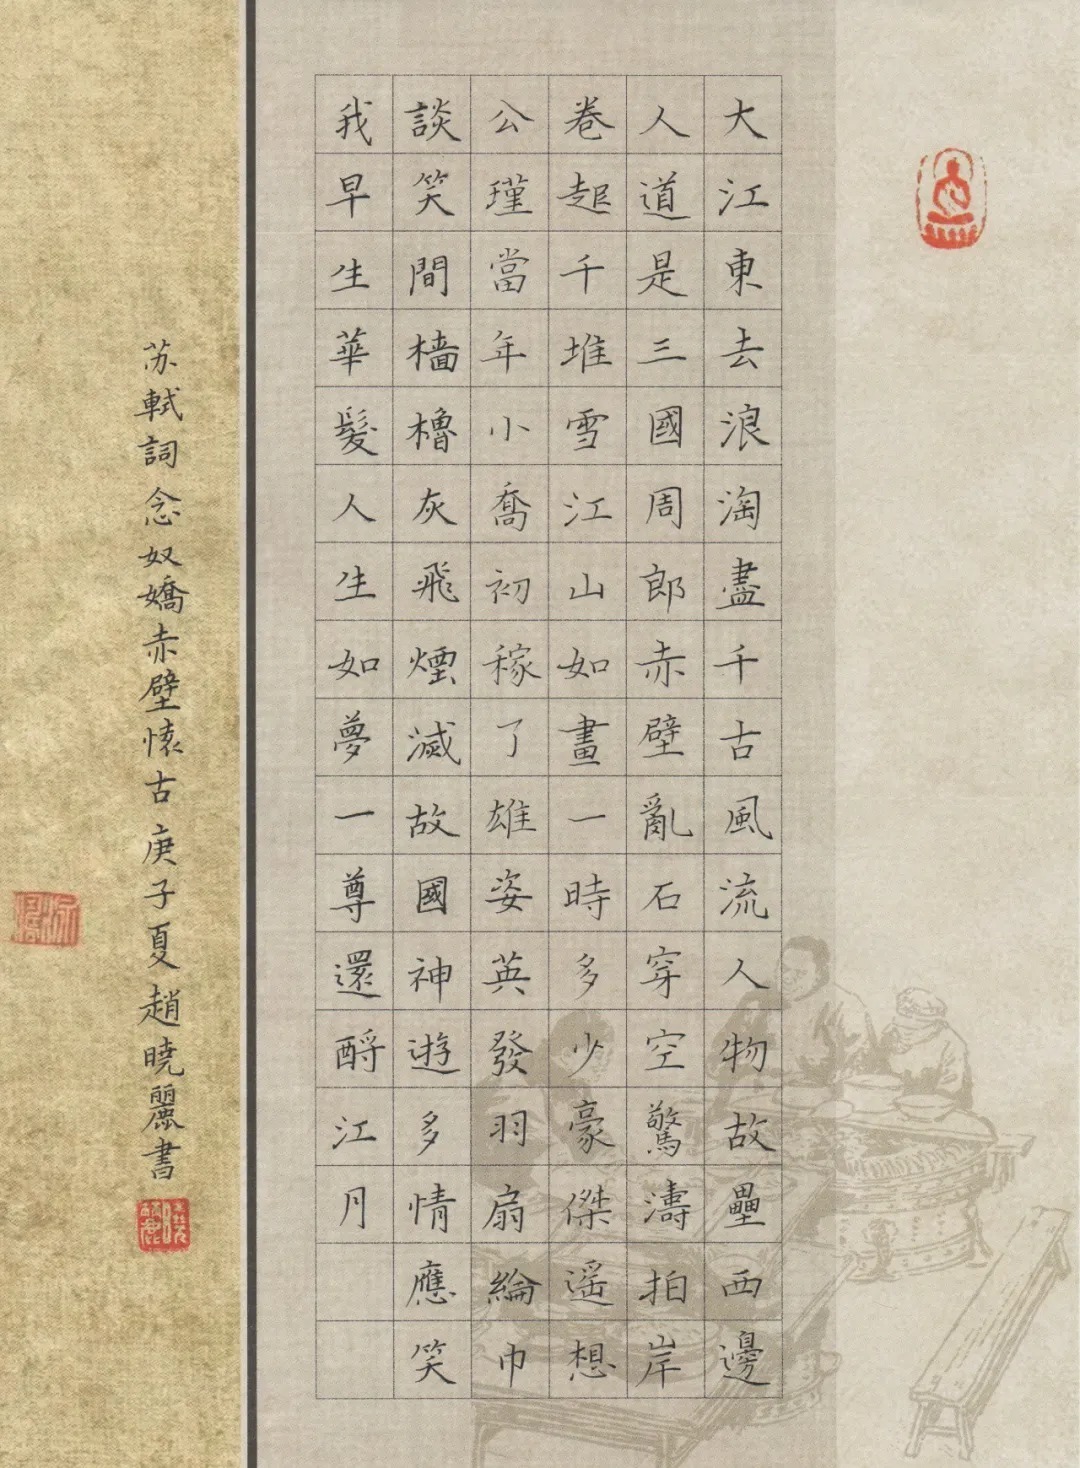 大江東去浪淘盡千古風流人物故壘西邊
人道是三國周郎赤壁亂石穿空驚濤拍岸
卷起千堆雪江山如畫一時多少豪傑遥想
公瑾當年小喬初稼了雄姿英發羽扇綸巾
談笑間檣櫓灰飛煙滅故國神遊多情應笑
我早生華髮人生如夢一尊還酹江月
苏軾詞念奴嬌赤壁懷古庚子夏趙曉麗書